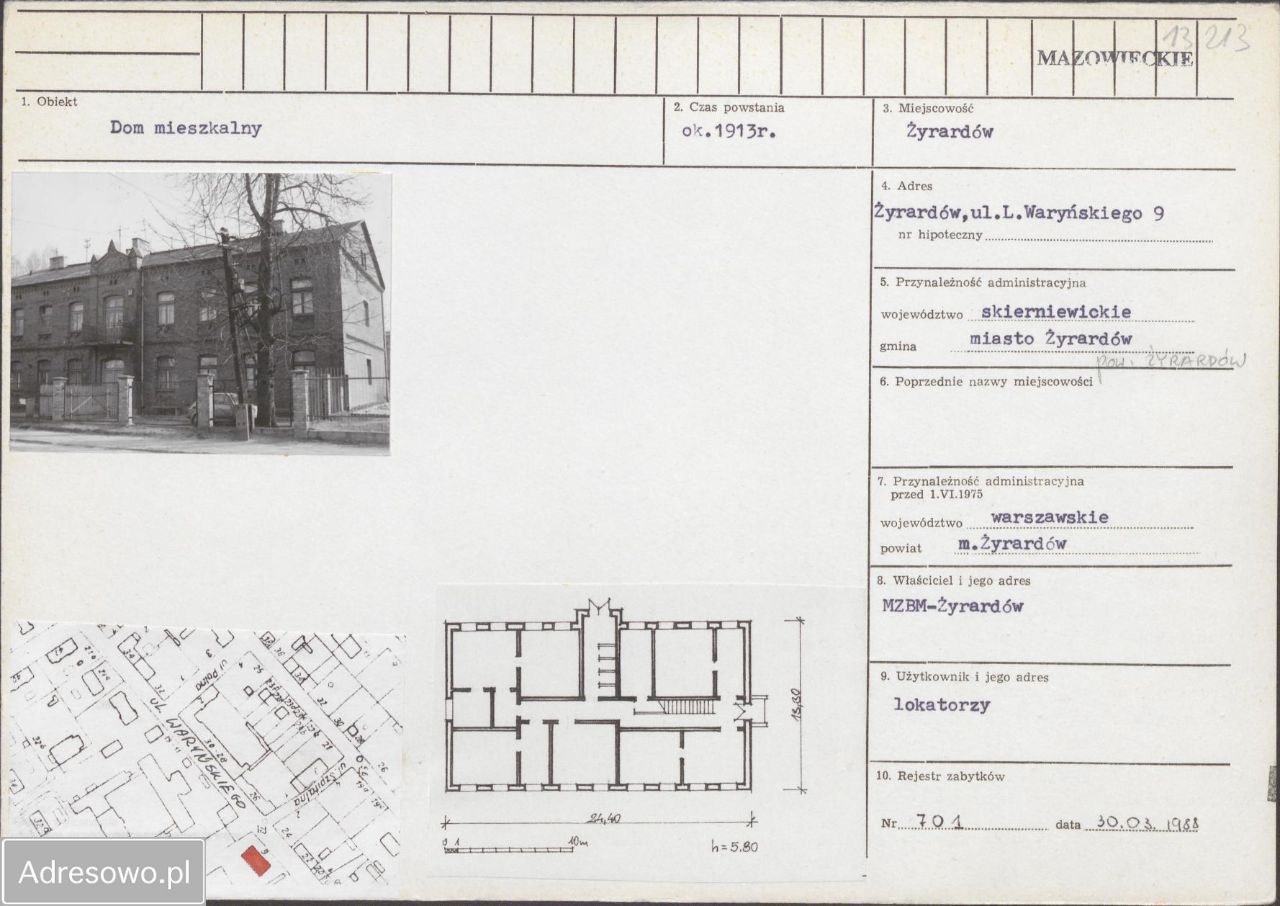 13 213
MAZOWIECKIE
1. Obiekt
Dom mieszkalny
2. Czas powstania
ok.1913r.
3. Miejscowość
Żyrardów
4. Adres
Żyrardów,ul.L.Waryńskiego 9
nr hipoteczny
5. Przynależność administracyjna
województwo skierniewickie
gmina miasto Żyrardów
pow. ŻYRARDÓW
6. Poprzednie nazwy miejscowości
7. Przynależność administracyjna
przed 1.VI.1975
województwo warszawskie
powiat m.Żyrardów
8. Właściciel i jego adres
MZBM-Żyrardów
9. Użytkownik i jego adres
lokatorzy
10. Rejestr zabytków
Nr 701 data 30.03.1988
ul. Polna
UL. WARYŃSKIEGO
ul. Szpitalna
30-28
26
24
9
13,30
24,40
0 1 10m
h=5.80
Adresowo.pl